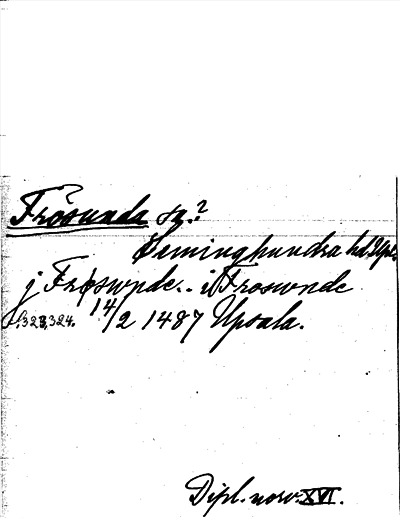 Frösunda sn.?
Seminghundra hd. Upl.
j Frøswnde.. i Froswnde
s. 323, 324. 14/2 1487 Upsala.
Dipl. norv. XVI.